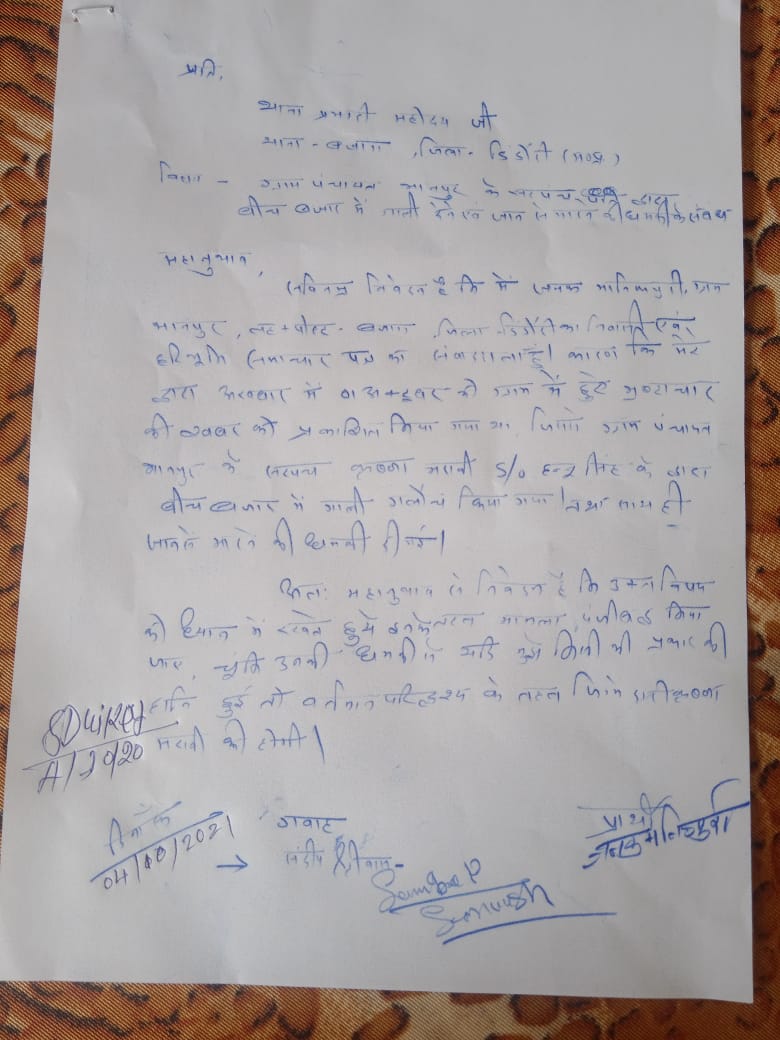 प्रति,
थाना प्रभारी महोदय जी
थाना - बजाग, जिला - डिंडौरी (म०प्र०)
विषय - ग्राम पंचायत भानपुर के सरपंच द्वारा
बीच बाजार में गाली देने एवं जान से मारने की धमकी के संबंध
महानुभाव,
सविनम्र निवेदन है कि मैं जनक मानिकपुरी, ग्राम
भानपुर, तह+पोस्ट - बजाग, जिला डिंडौरी का निवासी एवं
हरिभूमि समाचार पत्र का संवाददाता हूँ। कारण कि मेरे
द्वारा अखबार में को ग्राम में हुए भ्रष्टाचार
की खबर को प्रकाशित किया गया था, जिससे ग्राम पंचायत
भानपुर के सरपंच मरावी S/o सिंह के द्वारा
बीच बाजार में गाली गलौच किया गया। तथा साथ ही
जानसे मारने की धमकी दी गई।
अतः महानुभाव से निवेदन है कि उक्त विषय
को ध्यान में रखते हुये मामला पंजीबद्ध किया
जाए, चूंकि उनकी धमकी से यदि मुझे किसी भी प्रकार की
हानि हुई तो वर्तमान परिदृश्य के तहत
मरावी की होगी।
A/20/20
दिनाँक
04/10/2021
गवाह
संदीप
प्रार्थी
जनक मानिकपुरी